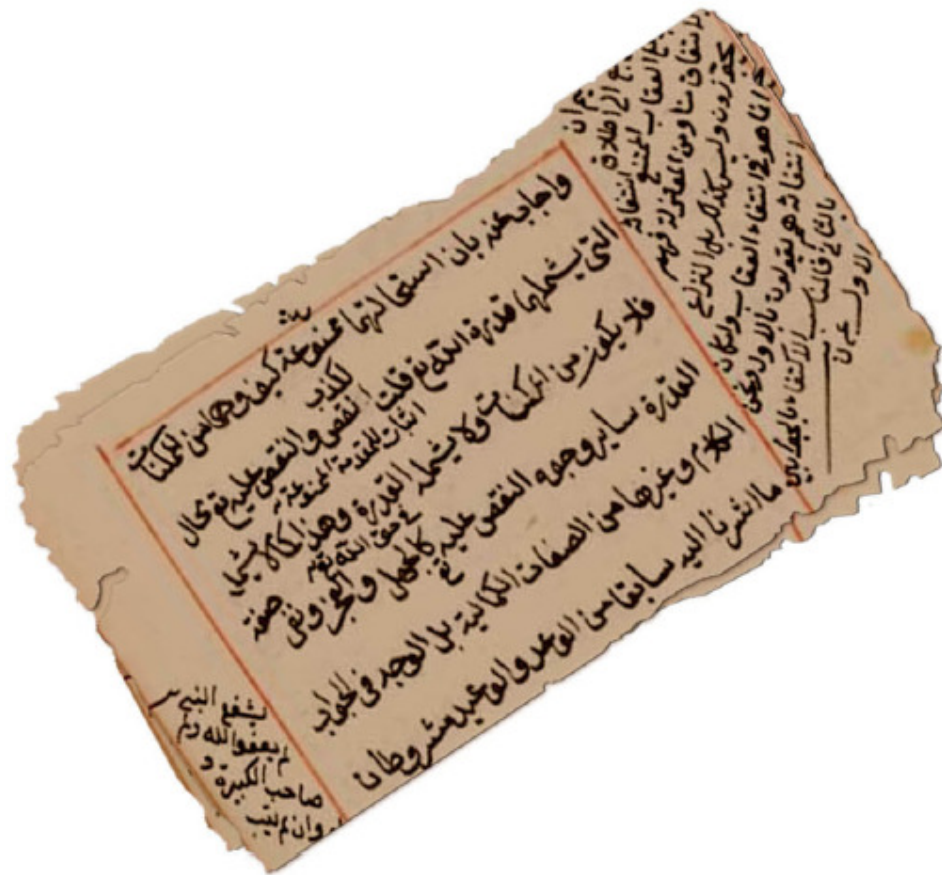 واجاب عنه بان استحالتهما ممنوعة كيف وهما من الممكنات
التى يشملها قدرة الله تع قلت الكذب نقص والنقص عليه تع محال
اثبات للمقدمة الممنوعة
فلا يكون من الممكنات ولا يشمله القدرة وهذا كما لا يشمل
فى حق الله تع
القدرة ساير وجوه النقص عليه تع كالجهل والعجز ونفى صفة
الكلام وغيرها من الصفات الكمالية بل الوجه فى الجواب
ما اشرنا اليه سابقا من الوعد والوعيد مشروطان
الى اطلاق
العقاب الممتنع انتفائه
بالاتفاق منا ومن المعتزلة فهم
يجوزون وليس كذلك بل النزاع
انما هو فى انتفاء العقاب
انتفائه هم يقولون بالاول ونحن
بالثانى الاكتفاء
الاول
لشفع النبى
لم يعفو الله ولم
صاحب الكبيرة و
وان لم يتب